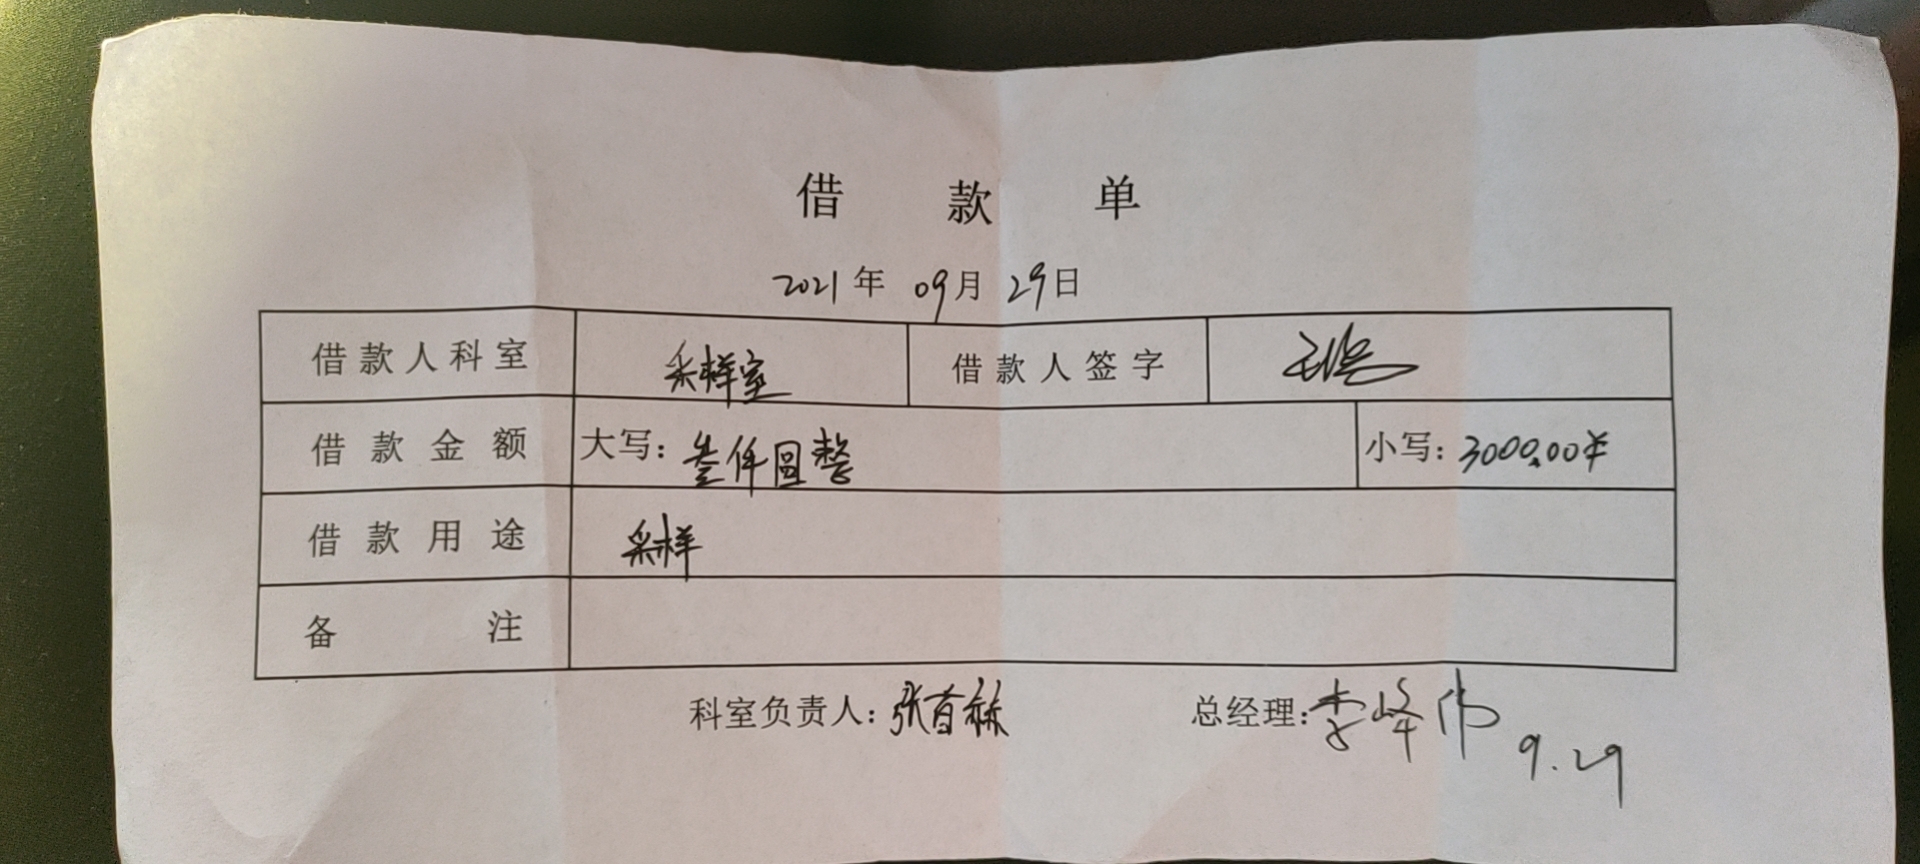 借款单
2021年09月29日
借款人科室 采样室 借款人签字
借款金额 大写：叁仟圆整 小写：3000.00¥
借款用途 采样
备注
科室负责人：张首林 总经理：李峰伟
9.29